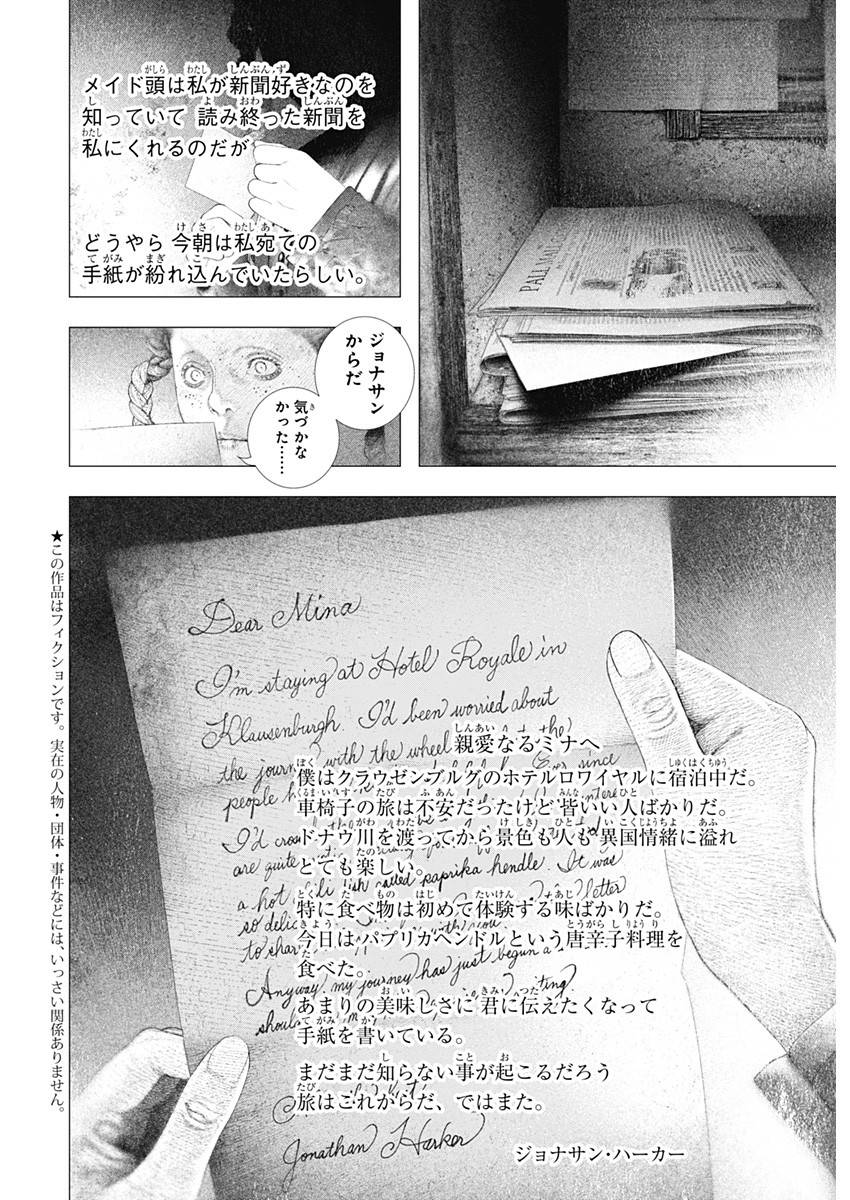 PALL MALL
メイド頭は私が新聞好きなのを
知っていて 読み終った新聞を
私にくれるのだが
どうやら 今朝は私宛ての
手紙が紛れ込んでいたらしい。
ジョナサン
からだ
気づかな
かった……
Dear Mina
I'm staying at Hotel Royale in
Klausenburgh. I'd been worried about
the journey with the wheel
people
since
I'd
are quite
a hot called paprika hendle. It was
so letter
to share
Anyway, my journey has just begun
should
Jonathan Harker
親愛なるミナへ
僕はクラウゼンブルグのホテルロワイヤルに宿泊中だ。
車椅子の旅は不安だったけど 皆いい人ばかりだ。
ドナウ川を渡ってから景色も人も 異国情緒に溢れ
とても楽しい。
特に食べ物は初めて体験する味ばかりだ。
今日はパプリカヘンドルという唐辛子料理を
食べた。
あまりの美味しさに 君に伝えたくなって
手紙を書いている。
まだまだ知らない事が起こるだろう
旅はこれからだ、ではまた。
ジョナサン・ハーカー
★この作品はフィクションです。実在の人物・団体・事件などには、いっさい関係ありません。